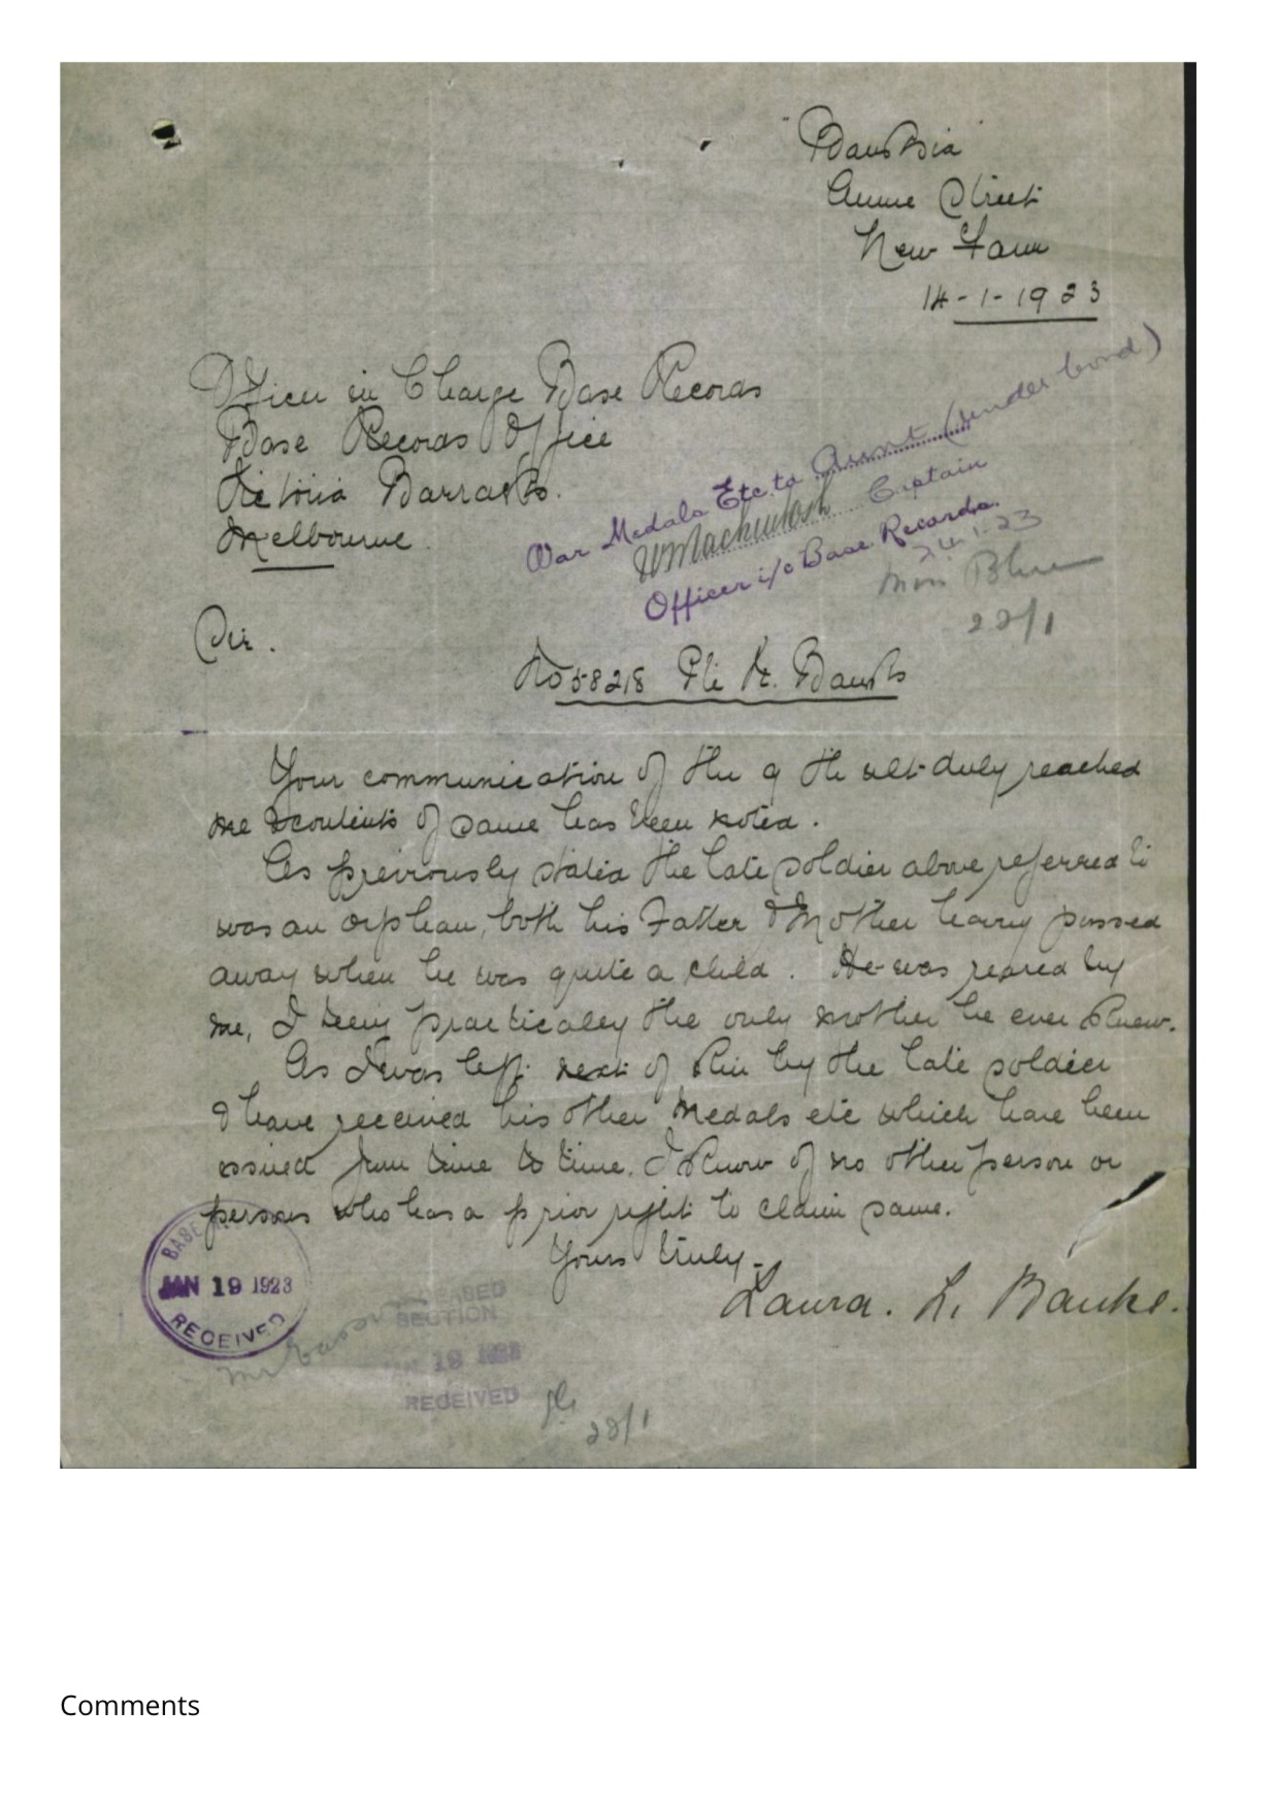 "Banksia"
Anne Street
New Farm
14-1-1923
Officer in Charge Base Records
Base Records Office
Victoria Barracks.
Melbourne.
War Medals Etc. to Aunt (under bond)
WMackintosh Captain
Officer i/c Base Records.
24.1.23
22/1
Sir.
No 5828 Pte Banks
Your communication of the 9th ult duly reached
me & contents of same has been noted.
As previously stated the late soldier above referred to
was an orphan, both his Father & Mother having passed
away when he was quite a child. He was reared by
me, I being practically the only mother he ever knew.
As I was left next of kin by the late soldier
I have received his other Medals etc which have been
issued from time to time. I know of no other person or
persons who has a prior right to claim same.
Yours truly -
Laura. L. Banks.
BASE
JAN 19 1923
RECEIVED
SECTION
19
RECEIVED
22/1
Comments